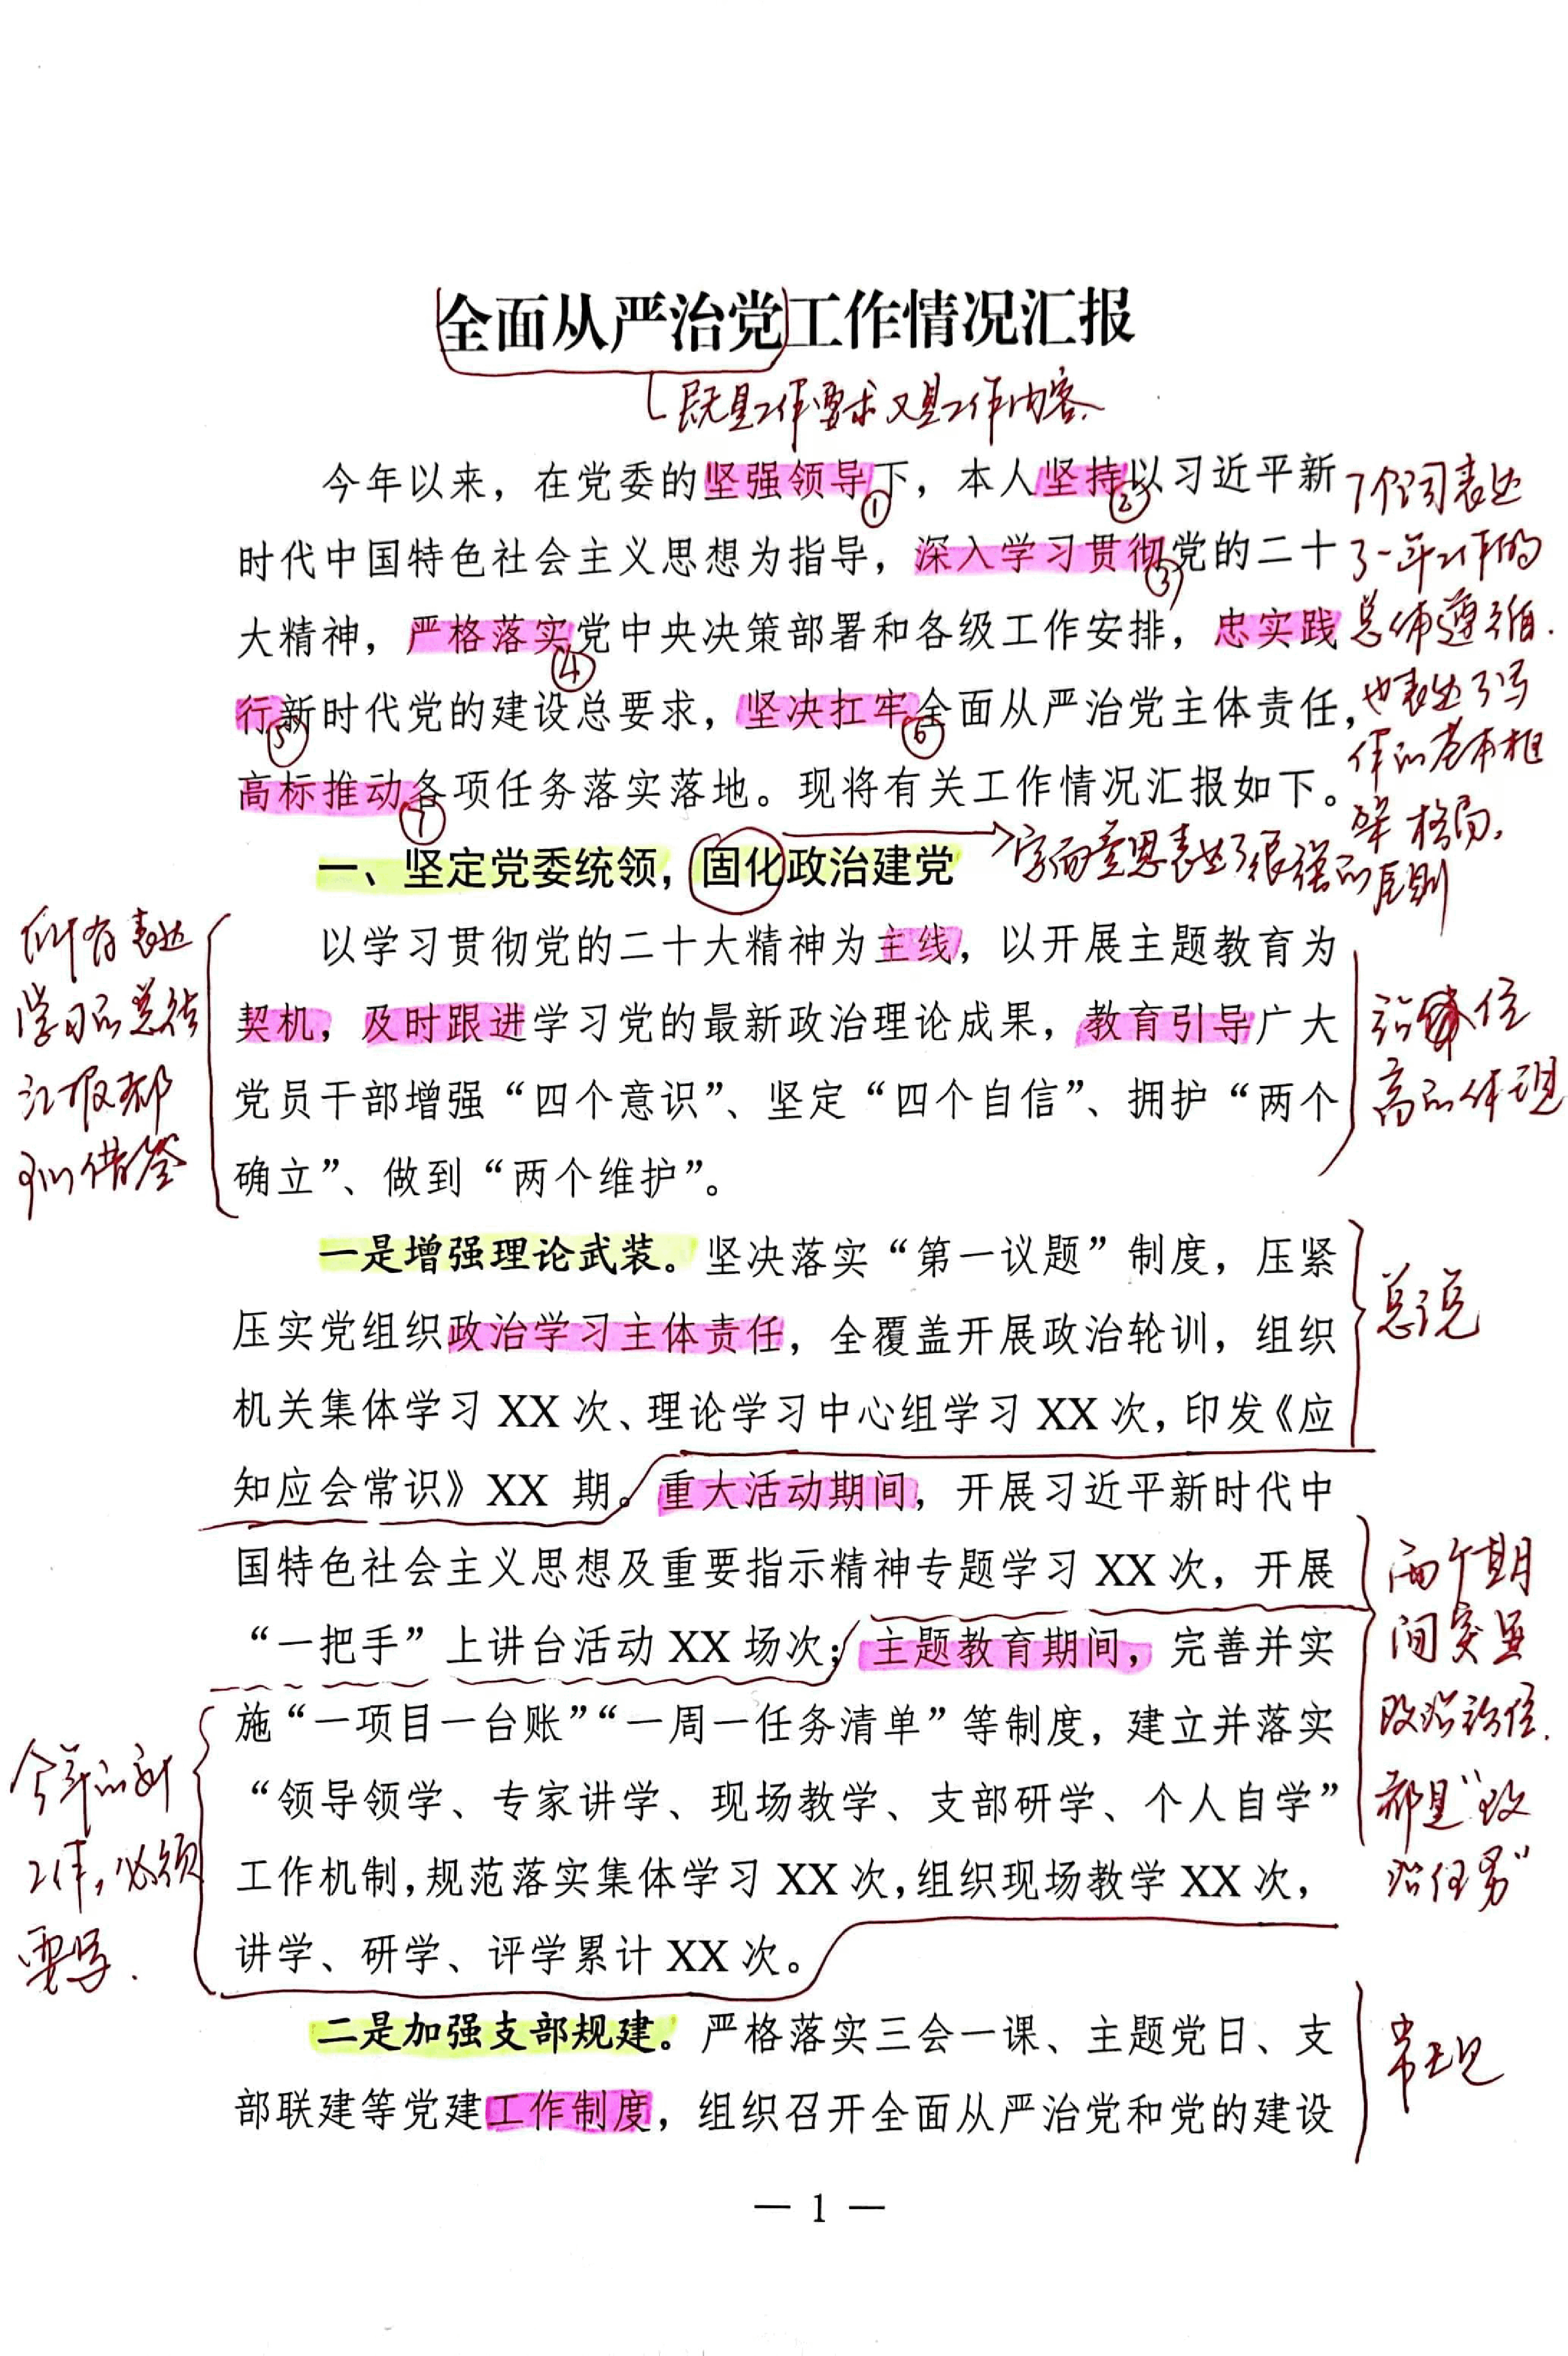 全面从严治党工作情况汇报
既是工作要求又是工作内容
今年以来，在党委的坚强领导下，本人坚持以习近平新
①
②
时代中国特色社会主义思想为指导，深入学习贯彻党的二十
③
大精神，严格落实党中央决策部署和各级工作安排，忠实践
④
行新时代党的建设总要求，坚决扛牢全面从严治党主体责任，
⑤
⑥
高标推动各项任务落实落地。现将有关工作情况汇报如下。
⑦
7个词表达
了一年工作的
总体遵循.
也表达了写
作的基本框
架格局.
一、坚定党委统领，固化政治建党
字面意思表达了很强的原则
以学习贯彻党的二十大精神为主线，以开展主题教育为
契机，及时跟进学习党的最新政治理论成果，教育引导广大
党员干部增强“四个意识”、坚定“四个自信”、拥护“两个
确立”、做到“两个维护”。
所有表达
学习的总结
汇报都
可以借鉴
站位
高的体现
一是增强理论武装。坚决落实“第一议题”制度，压紧
压实党组织政治学习主体责任，全覆盖开展政治轮训，组织
机关集体学习 XX 次、理论学习中心组学习 XX 次，印发《应
知应会常识》XX 期。重大活动期间，开展习近平新时代中
国特色社会主义思想及重要指示精神专题学习 XX 次，开展
“一把手”上讲台活动 XX 场次；主题教育期间，完善并实
施“一项目一台账”“一周一任务清单”等制度，建立并落实
“领导领学、专家讲学、现场教学、支部研学、个人自学”
工作机制，规范落实集体学习 XX 次，组织现场教学 XX 次，
讲学、研学、评学累计 XX 次。
总说
两个期
间突显
政治站位.
都是“政
治任务”
今年的新
工作，必须
要写.
二是加强支部规建。严格落实三会一课、主题党日、支
部联建等党建工作制度，组织召开全面从严治党和党的建设
常规
— 1 —